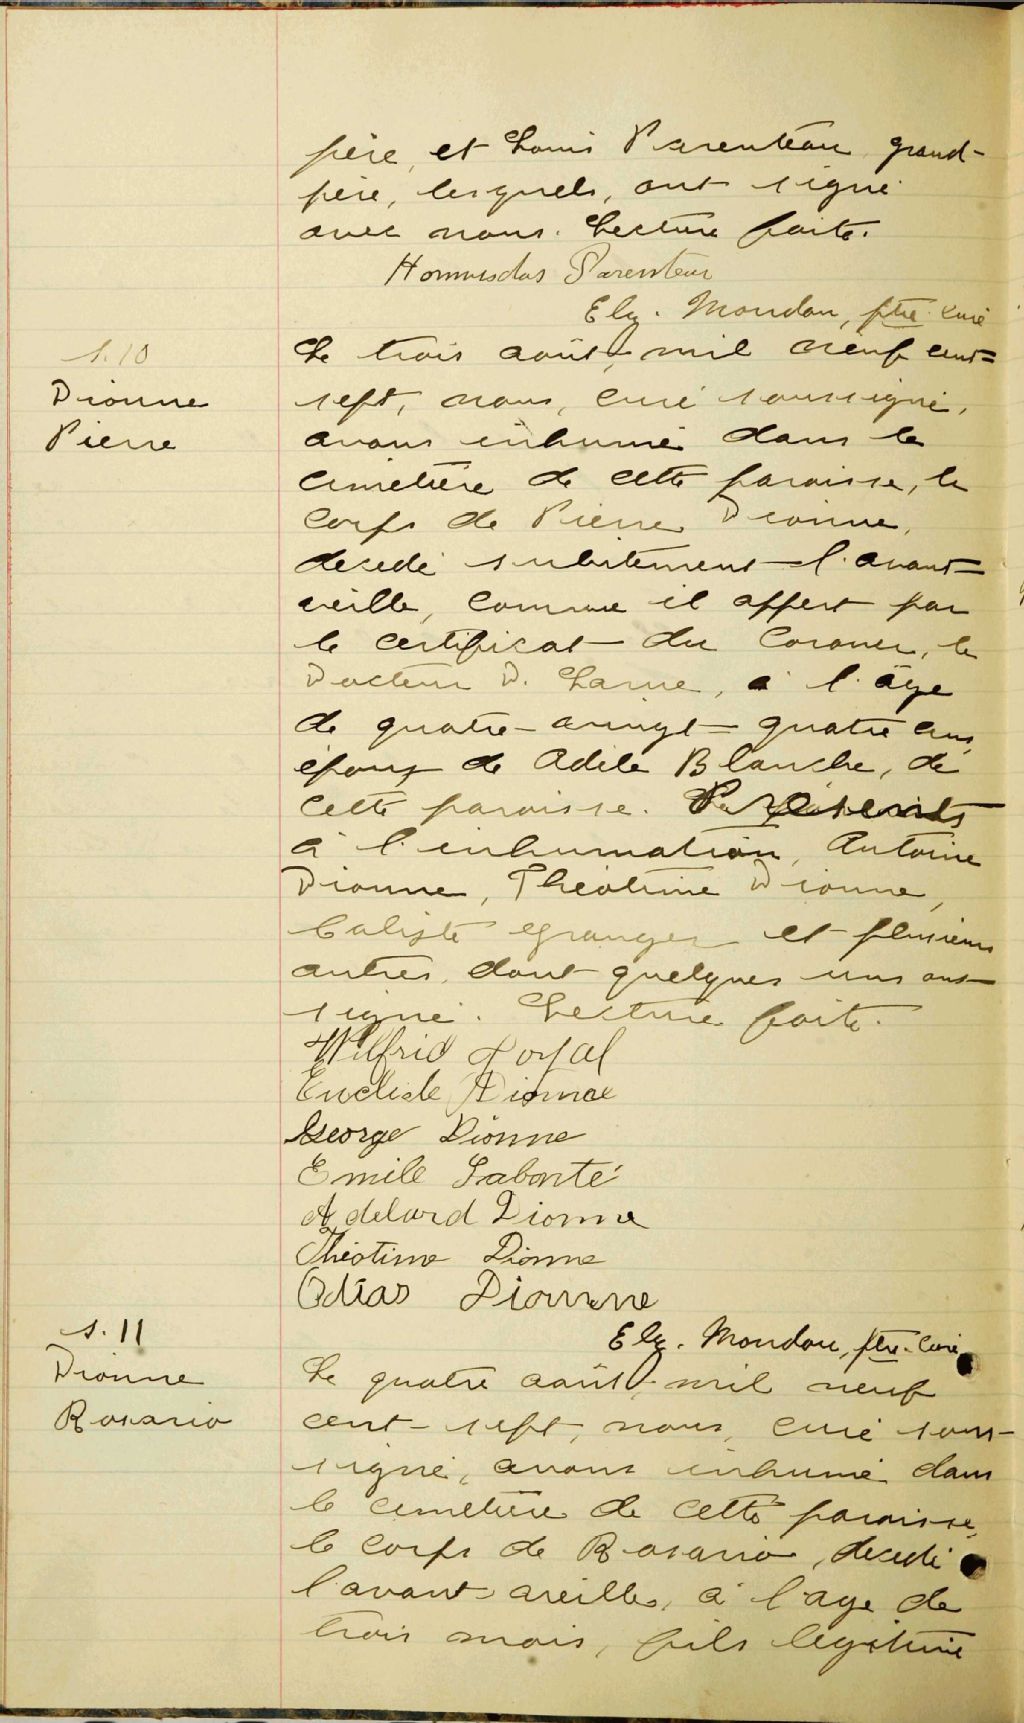 père, et Louis Parenteau grand-
père, lesquels, ont signé
avec nous. Lecture faite.
Hormisdas Parenteau
Elz. Mondou, ptre curé
S. 10
Dionne
Pierre
Le trois août, mil neuf cent-
sept, nous, curé soussigné,
avons inhumé dans le
cimetière de cette paroisse, le
corps de Pierre Dionne,
décédé subitement l'avant-
veille, comme il appert par
le certificat du Coroner, le
Docteur D. Larue, à l'âge
de quatre-vingt-quatre ans,
époux de Adèle Blanche, de
cette paroisse. Présents
à l'inhumation, Antoine
Dionne, Théotime Dionne,
Calixte Granger et plusieurs
autres, dont quelques uns ont
signé. Lecture faite.
Wilfrid Joyal
Euclide Dionne
George Dionne
Emile Labonté
Adelard Dionne
Théotime Dionne
Odias Dionne
Elz. Mondou, ptre-curé
S. 11
Dionne
Rosario
Le quatre août, mil neuf
cent-sept, nous, curé sous-
signé, avons inhumé dans
le cimetière de cette paroisse,
le corps de Rosario, décédé
l'avant-veille, à l'age de
trois mois, fils légitime